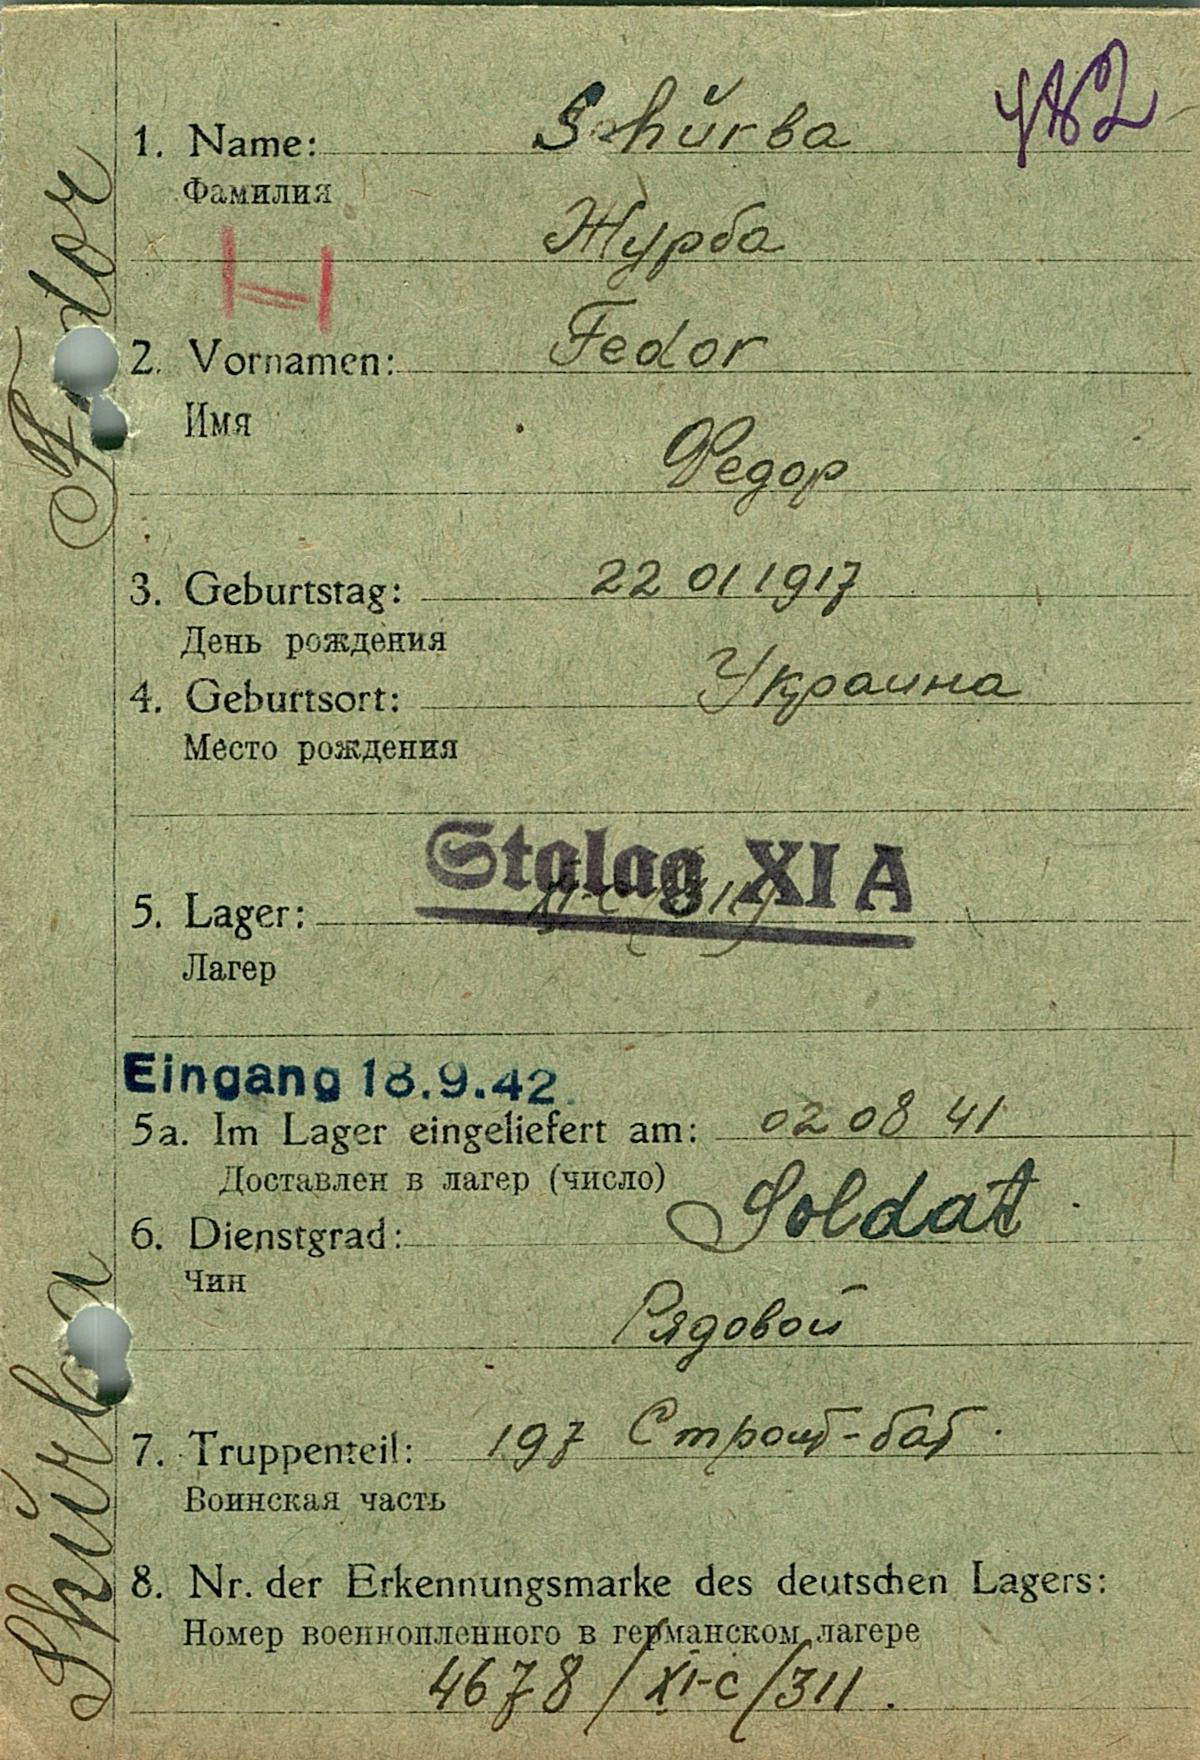 482
1. Name: Schŭrba
Фамилия
Журба
2. Vornamen: Fedor
Имя
Федор
3. Geburtstag: 22 01 1917
День рождения
4. Geburtsort: Украина
Место рождения
Stalag XI A
5. Lager:
Лагер
Eingang 18.9.42.
5a. Im Lager eingeliefert am: 02 08 41
Доставлен в лагер (число)
6. Dienstgrad: Soldat
Чин
Рядовой
7. Truppenteil: 197 Строит-бат.
Воинская часть
8. Nr. der Erkennungsmarke des deutschen Lagers:
Номер военнопленного в германском лагере
4678 / XI-C / 311.
Shŭrba
Fedor